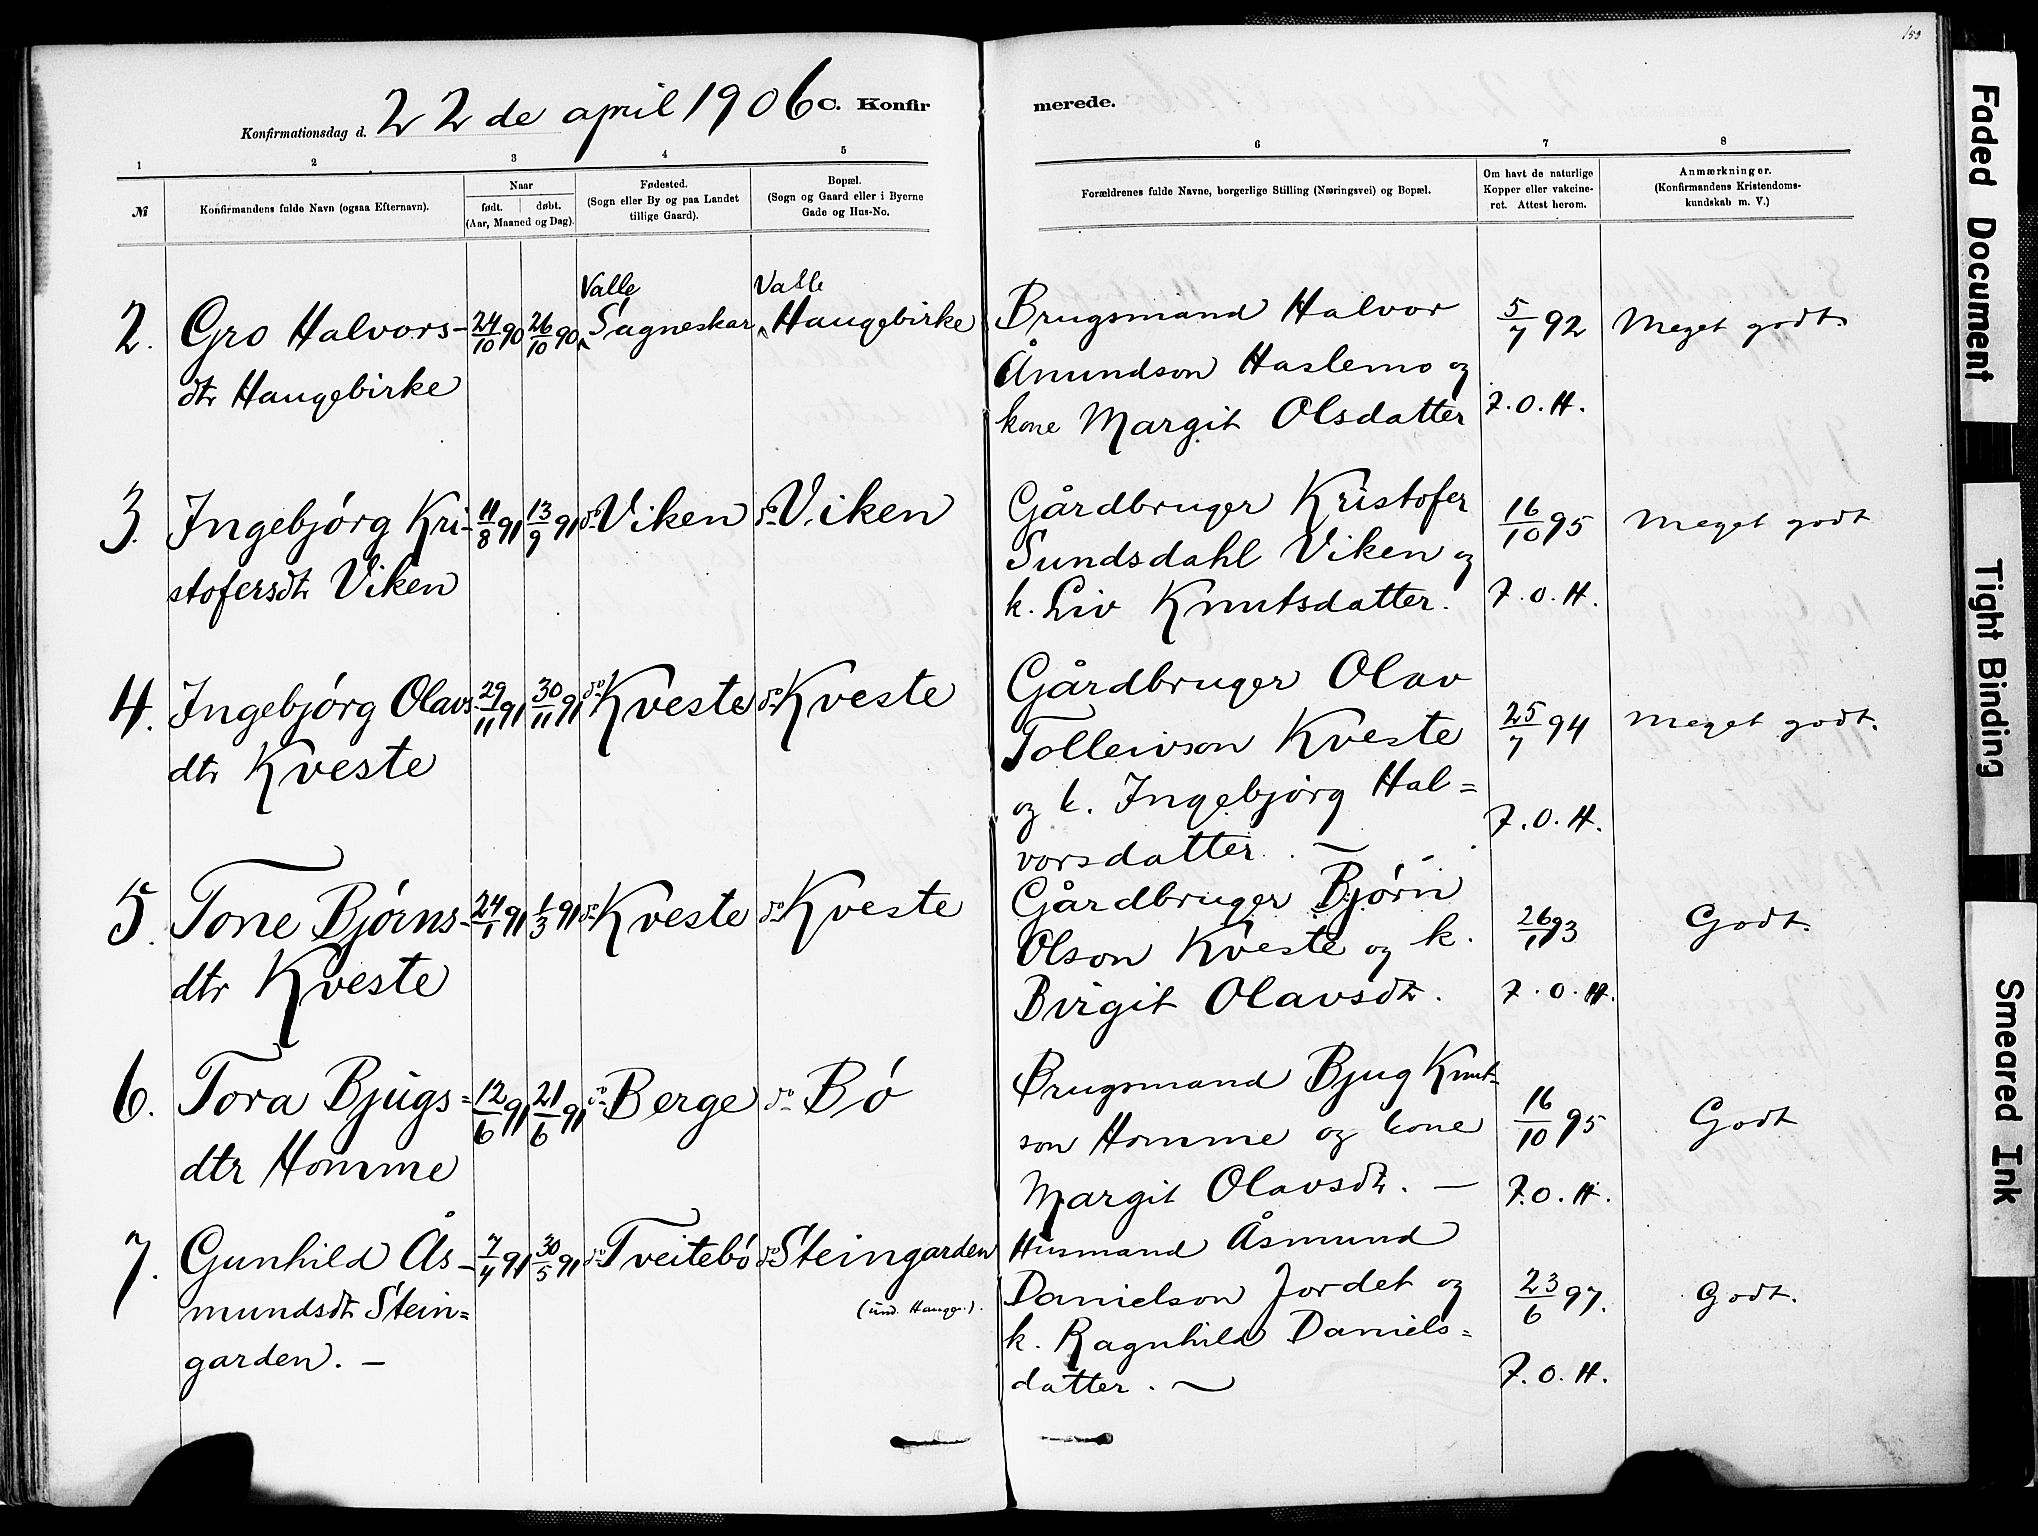 153
Konfirmationsdag d. 22de april 1906 C. Konfirmerede.
1 2 3 4 5 6 7 8
№ Konfirmandens fulde Navn (ogsaa Efternavn).
Naar
født. døbt.
(Aar, Maaned og Dag).
Fødested.
(Sogn eller By og paa Landet
tillige Gaard).
Bopæl.
(Sogn og Gaard eller i Byerne
Gade og Hus-No.
Forældrenes fulde Navne, borgerlige Stilling (Næringsvei) og Bopæl.
Om havt de naturlige
Kopper eller vakcine-
ret. Attest herom.
Anmærkninger.
(Konfirmandens Kristendoms-
kundskab m. V.)
2. Gro Halvors-
dtr Haugebirke
24/10 90 26/10 90
Valle
Sagneskar
Valle
Haugebirke
Brugsmand Halvor
Ånundson Haslemo og
kone Margit Olsdatter
5/7 92
F. O. H.
Meget godt.
3. Ingebjørg Kri-
stofersdtr Viken
11/8 91 13/9 91 do Viken do Viken
Gårdbruger Kristofer
Sundsdahl Viken og
k. Liv Knutsdatter.
16/10 95
F. O. H.
Meget godt
4. Ingebjørg Olavs-
dtr Kveste
29/11 91 30/11 91 do Kveste do Kveste
Gårdbruger Olav
Tolleivson Kveste
og k. Ingebjørg Hal=
vorsdatter. —
25/7 94
F. O. H.
Meget godt.
5. Tone Bjørns-
dtr Kveste
24/1 91 1/3 91 do Kveste do Kveste
Gårdbruger Bjørn
Olson Kveste og k.
Birgit Olavsdtr.
26/11 93
F. O. H.
Godt.
6. Tora Bjugs=
dtr Homme
12/6 91 21/6 91 do Berge do Bø
Brugsmand Bjug Knut-
son Homme og kone
Margit Olavsdtr. —
16/10 95
F. O. H.
Godt
7. Gunhild Ås-
mundsdtr Stein=
garden. —
7/4 91 30/5 91 do Tveitebø do Steingarden
(und. Haugge.).
Husmand Åsmund
Danielson Jordet og
k. Ragnhild Daniels=
datter. —
23/6 97.
F. O. H.
Godt.
Faded Document
Tight Binding
Smeared Ink